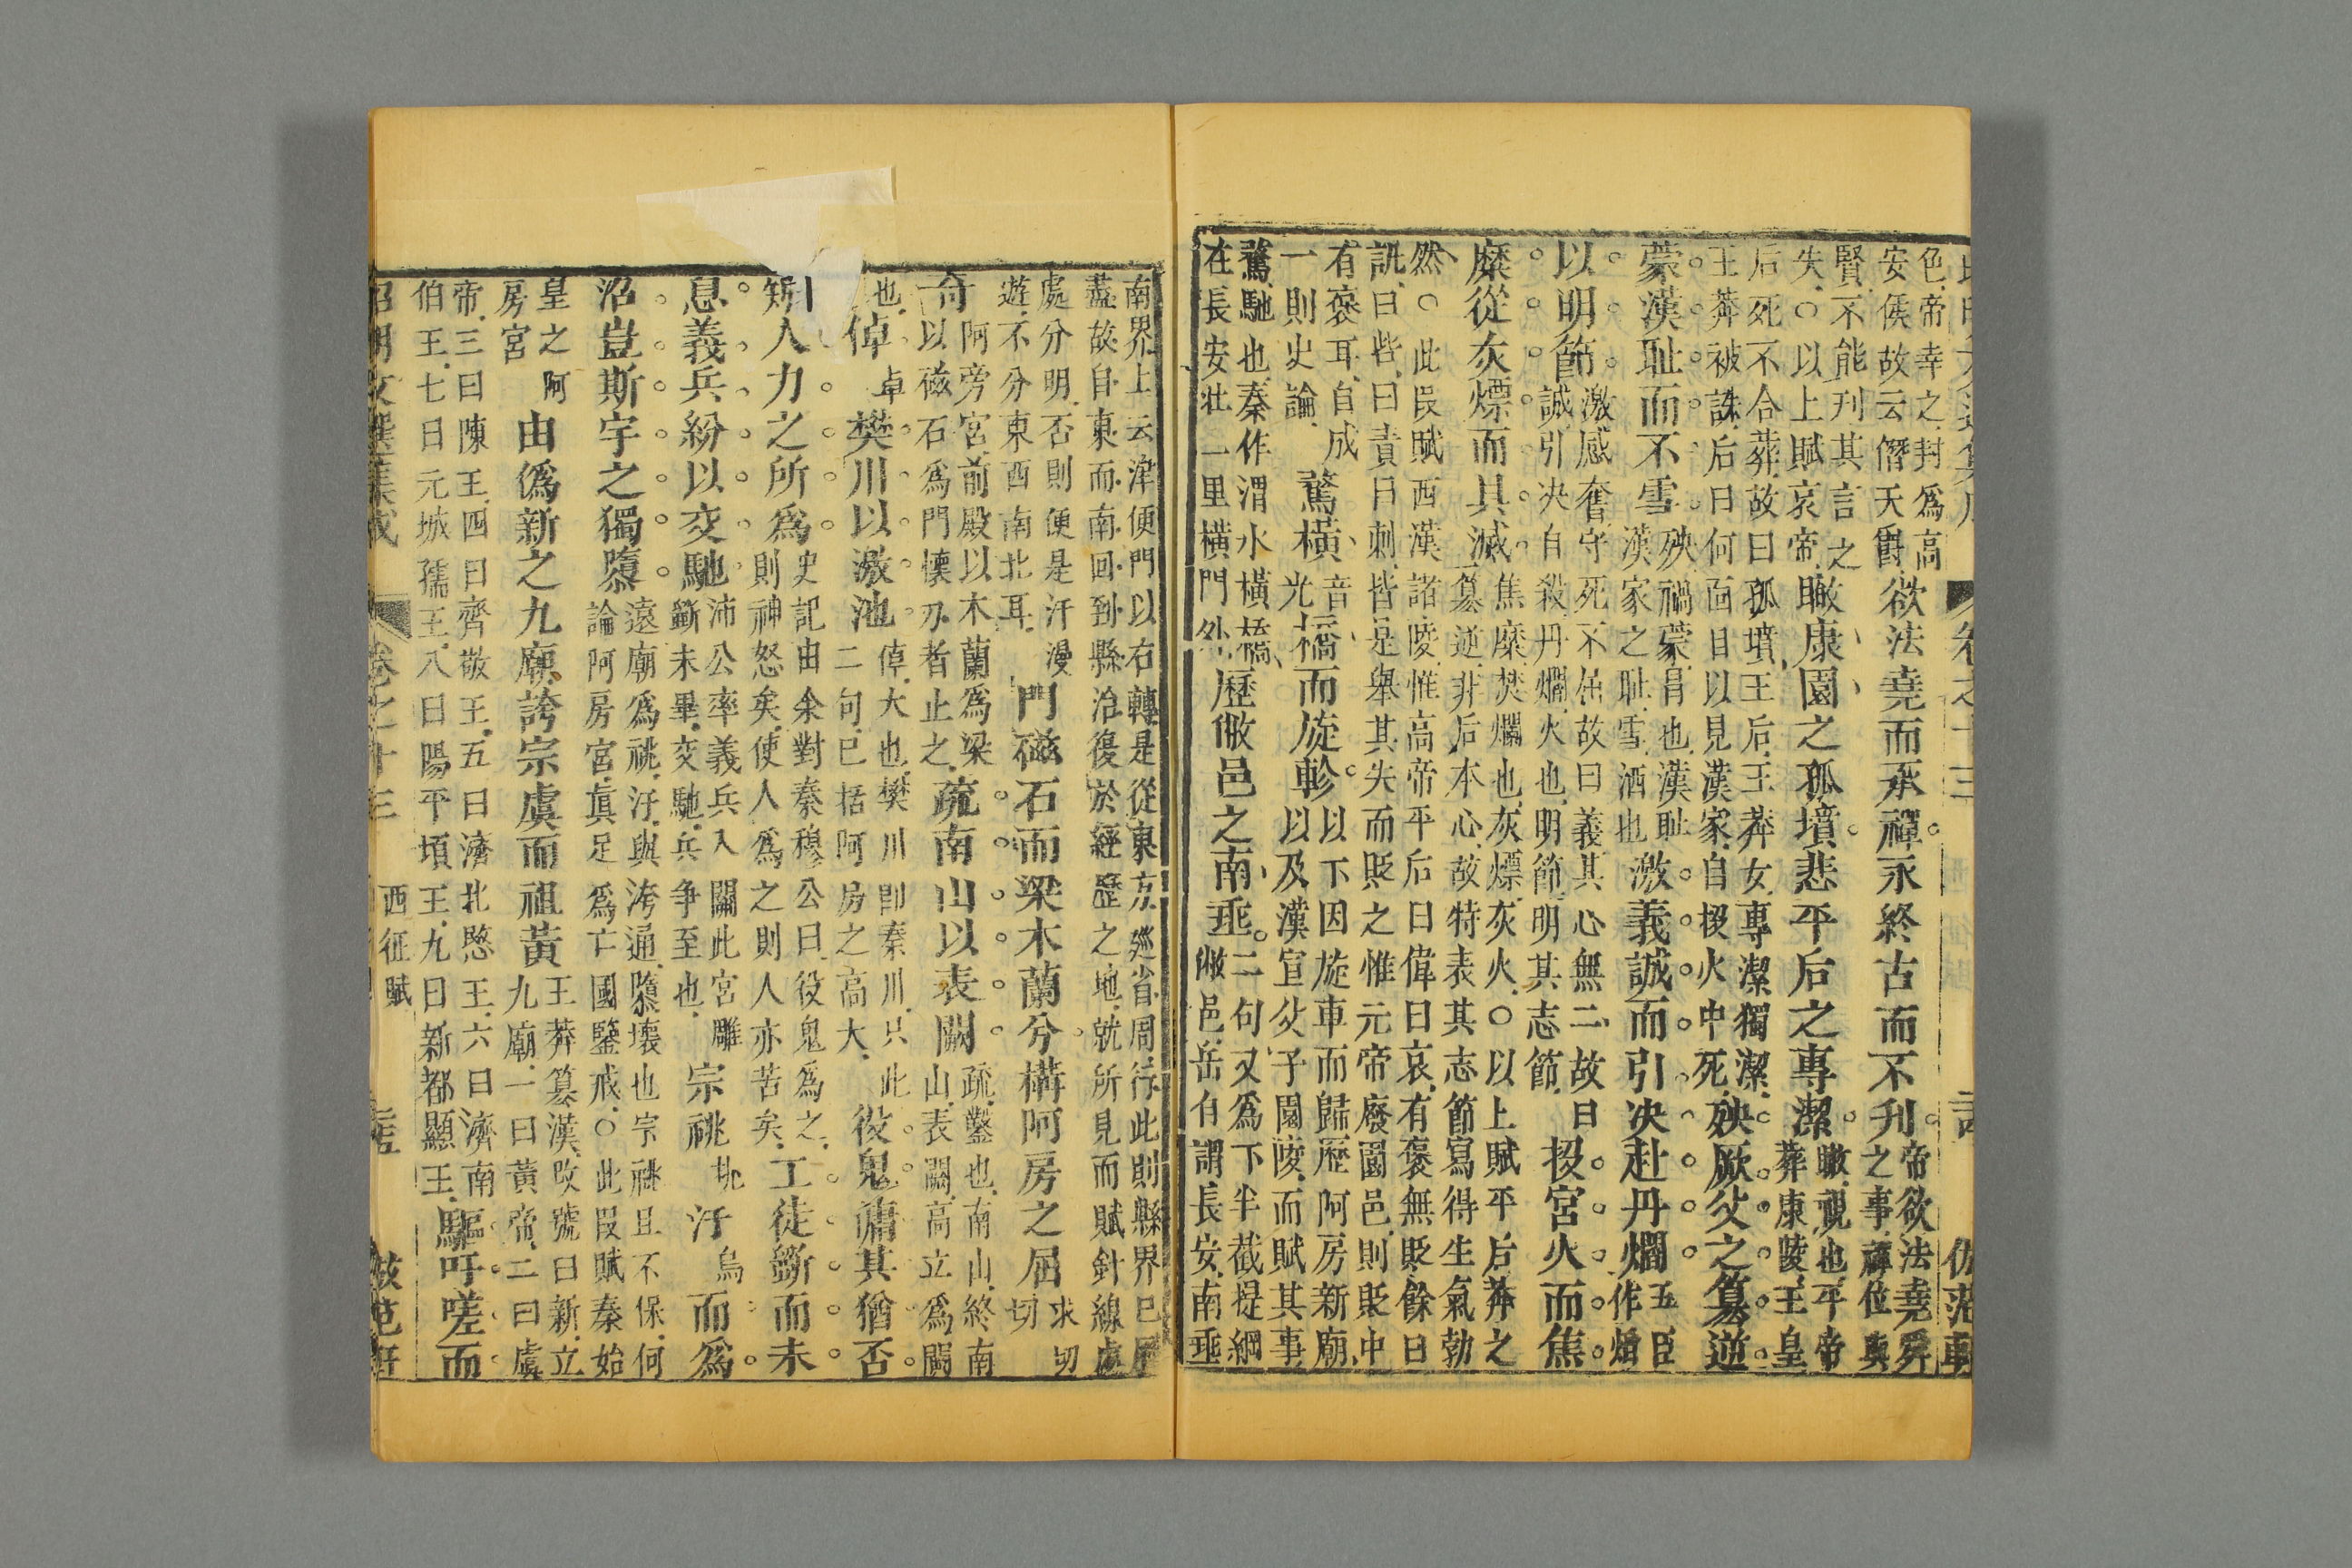 卷之十三
色帝幸之封爲高安侯故云僭天爵欲法堯而承禪永終古而不刋帝欲法堯舜之事禪位與
賢不能刋其言之失○以上賦哀帝瞰康園之孤墳悲平后之專潔瞰視也平帝葬康陵王皇
后死不合葬故曰孤墳王后王莽女專潔獨潔王莽被誅后曰何面目以見漢家自投火中死殃厥父之篡逆
蒙漢耻而不雪殃禍蒙冐也漢耻漢家之耻雪洒也激義誠而引决赴丹爓五臣作燄
以明節激感奮守死不屈故曰義其心無二故曰誠引决自殺丹爓火也明節明其志節投宮火而焦
糜從灰熛而其滅焦糜焚爛也灰熛灰火○以上賦平后莽之篡逆非后本心故特表其志節寫得生氣勃
然○此叚賦西漢諸陵惟高帝平后曰偉曰哀有褒無貶餘曰訛曰呰曰責曰刺皆是舉其失而貶之惟元帝廢園邑則貶中
有褒耳自成一則史論騖橫音光橋而旋軫以下因旋車而歸歷阿房新廟以及漢宣父子園陵而賦其事
騖馳也秦作渭水橫橋在長安北二里橫門外歷敝邑之南垂二句又爲下半截提綱敝邑岳自謂長安南垂
南界上云津便門以右轉是從東方廵省周行此則縣界已歷盡故自東而南回到縣治復於經歷之地就所見而賦針線處
處分明否則便是汗漫遊不分東西南北耳門磁石而梁木蘭兮構阿房之屈求勿切
奇阿旁宮前殿以木蘭爲梁以磁石爲門懷刃者止之疏南山以表闕疏鑿也南山終南山表闕高立爲闕
也倬卓樊川以激池倬大也樊川卽秦川只此二句已括阿房之高大役鬼傭其猶否
矧人力之所爲史記由余對秦穆公曰役鬼爲之則神怒矣使人爲之則人亦苦矣工徒斵而未
息義兵紛以交馳沛公率義兵入關此宮雕斵未畢交馳兵争至也宗祧祧汙烏而爲
沼豈斯宇之獨隳遠廟爲祧汙與洿通隳壞也宗祧且不保何論阿房宮眞足爲亡國鑒戒○此叚賦秦始
皇之阿房宮由僞新之九廟誇宗虞而祖黃王莽篡漢改號曰新立九廟一曰黃帝二曰虞
帝三曰陳王四曰齊敬王五曰濟北愍王六曰濟南伯王七曰元城孺王八曰陽平頃王九曰新都顯王驅吁嗟而
昭明文選集成 卷之十三 西征賦 倣范軒